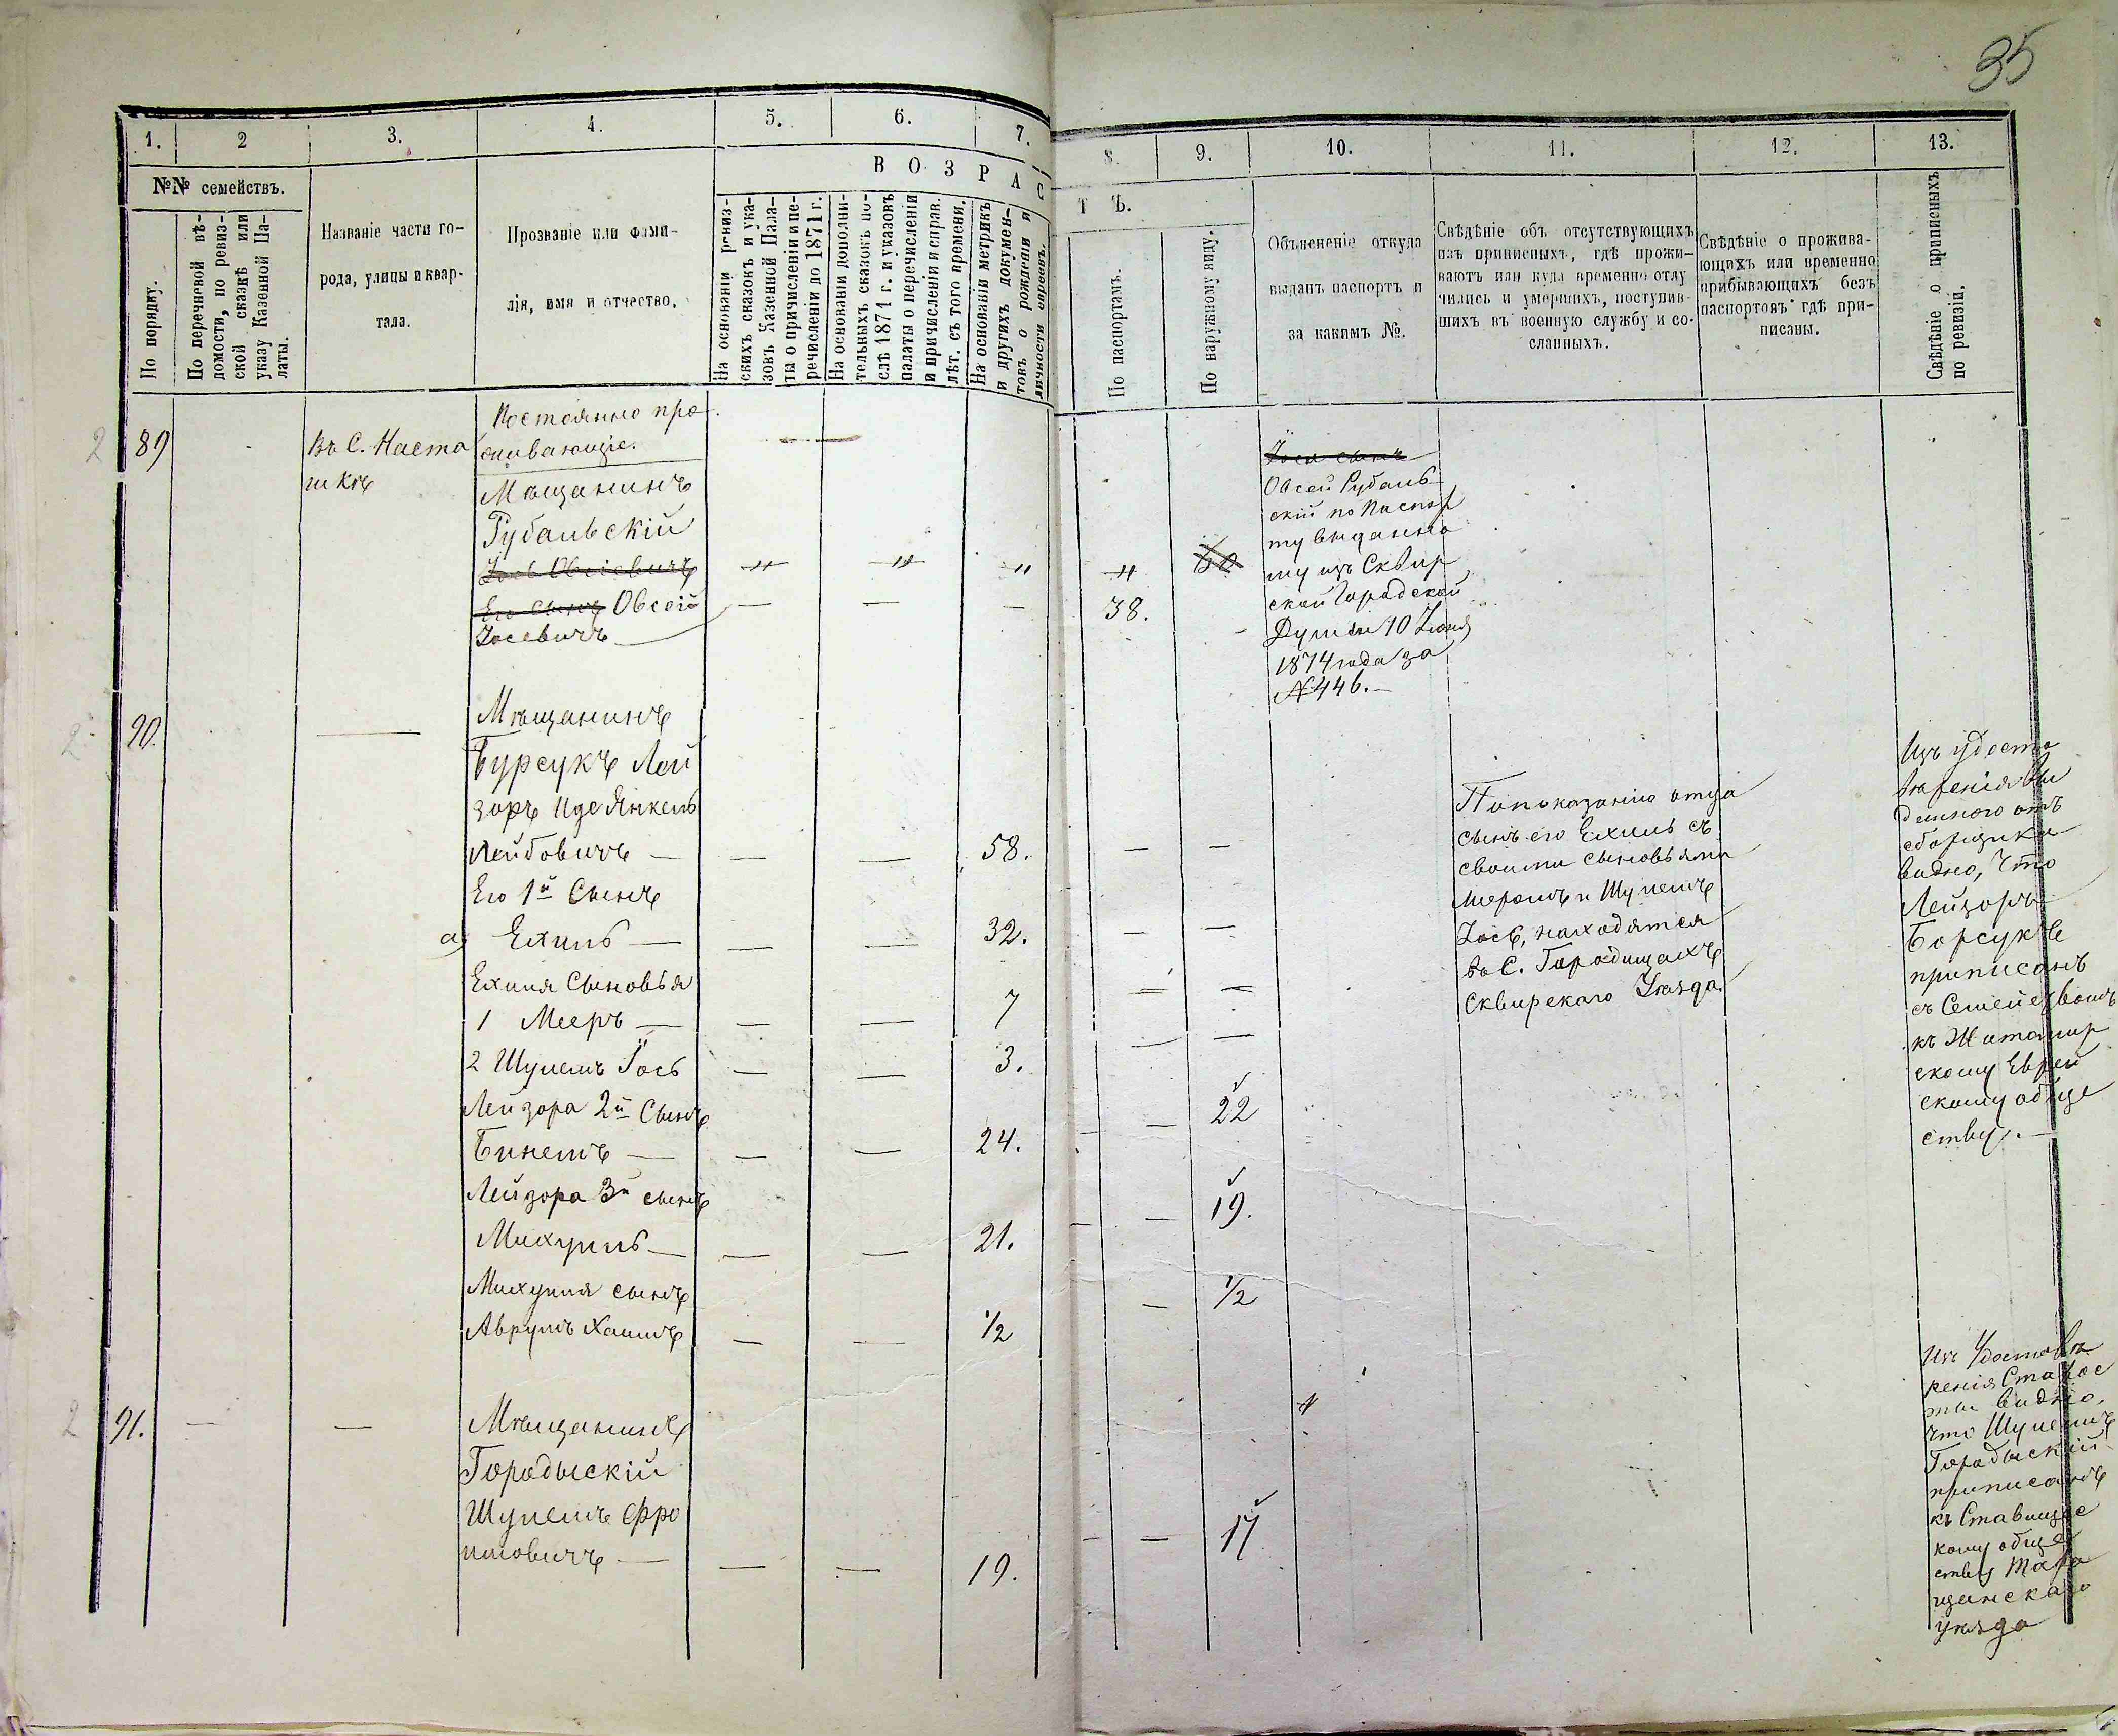 35
1.
2
3.
4.
5.
6.
7.
8.
9.
10.
11.
12.
13.
№№ семействъ.
В О З Р А С
Т Ъ.
По порядку.
По перечневой вѣ-
домости, по ревиз-
ской сказкѣ или
указу Казенной Па-
латы.
Названіе части го-
рода, улицы и квар-
тала.
Прозваніе или фами-
лія, имя и отчество.
На основаніи ревиз-
скихъ сказокъ и ука-
зовъ Казенной Пала-
ты о причисленіи и пе-
речисленіи до 1871 г.
На основаніи дополни-
тельныхъ сказокъ по-
слѣ 1871 г. и указовъ
палаты о перечисленіи
и причисленіи и справ.
лѣт. съ того времени.
На основаніи метрикъ
и другихъ докумен-
товъ о рожденіи и
личности евреевъ.
По паспортамъ.
По наружному виду.
Объясненіе откуда
выданъ паспортъ и
за какимъ №.
Свѣдѣніе объ отсутствующихъ
изъ приписныхъ, гдѣ прожи-
ваютъ или куда временно отлу
чились и умершихъ, поступив-
шихъ въ военную службу и со-
сланныхъ.
Свѣдѣніе о прожива-
ющихъ или временно
прибывающихъ безъ
паспортовъ гдѣ при-
писаны.
Свѣдѣніе о приписныхъ
по ревизіи.
2
89
Въ С. Наста
шкѣ
Постоянно про
живающіе.
Мѣщанинъ
Рубальскій
Іось Овсіевичъ
Его сынъ Овсей
Іосевичъ
38.
60
Іося сынъ
Овсей Рубаль
скій по Паспор
ту выданно
му изъ Сквир
ской Городской
Думы 10 Іюня
1874 года за
№ 446.
2
90.
Мѣщанинъ
Бурсукъ Лей
зоръ Идо Янкель
Лейбовичъ
58.
Его 1й Сынъ
а) Ехиль
32.
Ехиля Сыновья
1 Мееръ
7
2 Шулемъ Іось
3.
Лейзора 2й Сынъ
Бинемъ
24.
22
Лейзора 3й сынъ
Михуиль
21.
19.
Михуиля сынъ
Аврумъ Хаимъ
1/2
1/2
По показанію отца
сынъ его Ехиль съ
своими сыновьями
Меромъ и Шулемъ
Іось, находятся
въ С. Городищахъ
Сквирскаго Уѣзда.
Изъ удосто
вѣренія вы
даннаго отъ
сборщика
видно, что
Лейзоръ
Борсукъ
приписанъ
съ Семействомъ
къ Житомир
скому Еврей
скому обще
ству.
2
91.
Мѣщанинъ
Городыскій
Шулемъ Фро
имовичъ
19.
17
Изъ Удостовѣ
ренія Старос
ты видно,
что Шулемъ
Городыскій
приписанъ
къ Ставищс
кому обще
ству Тара
щанскаго
уѣзда